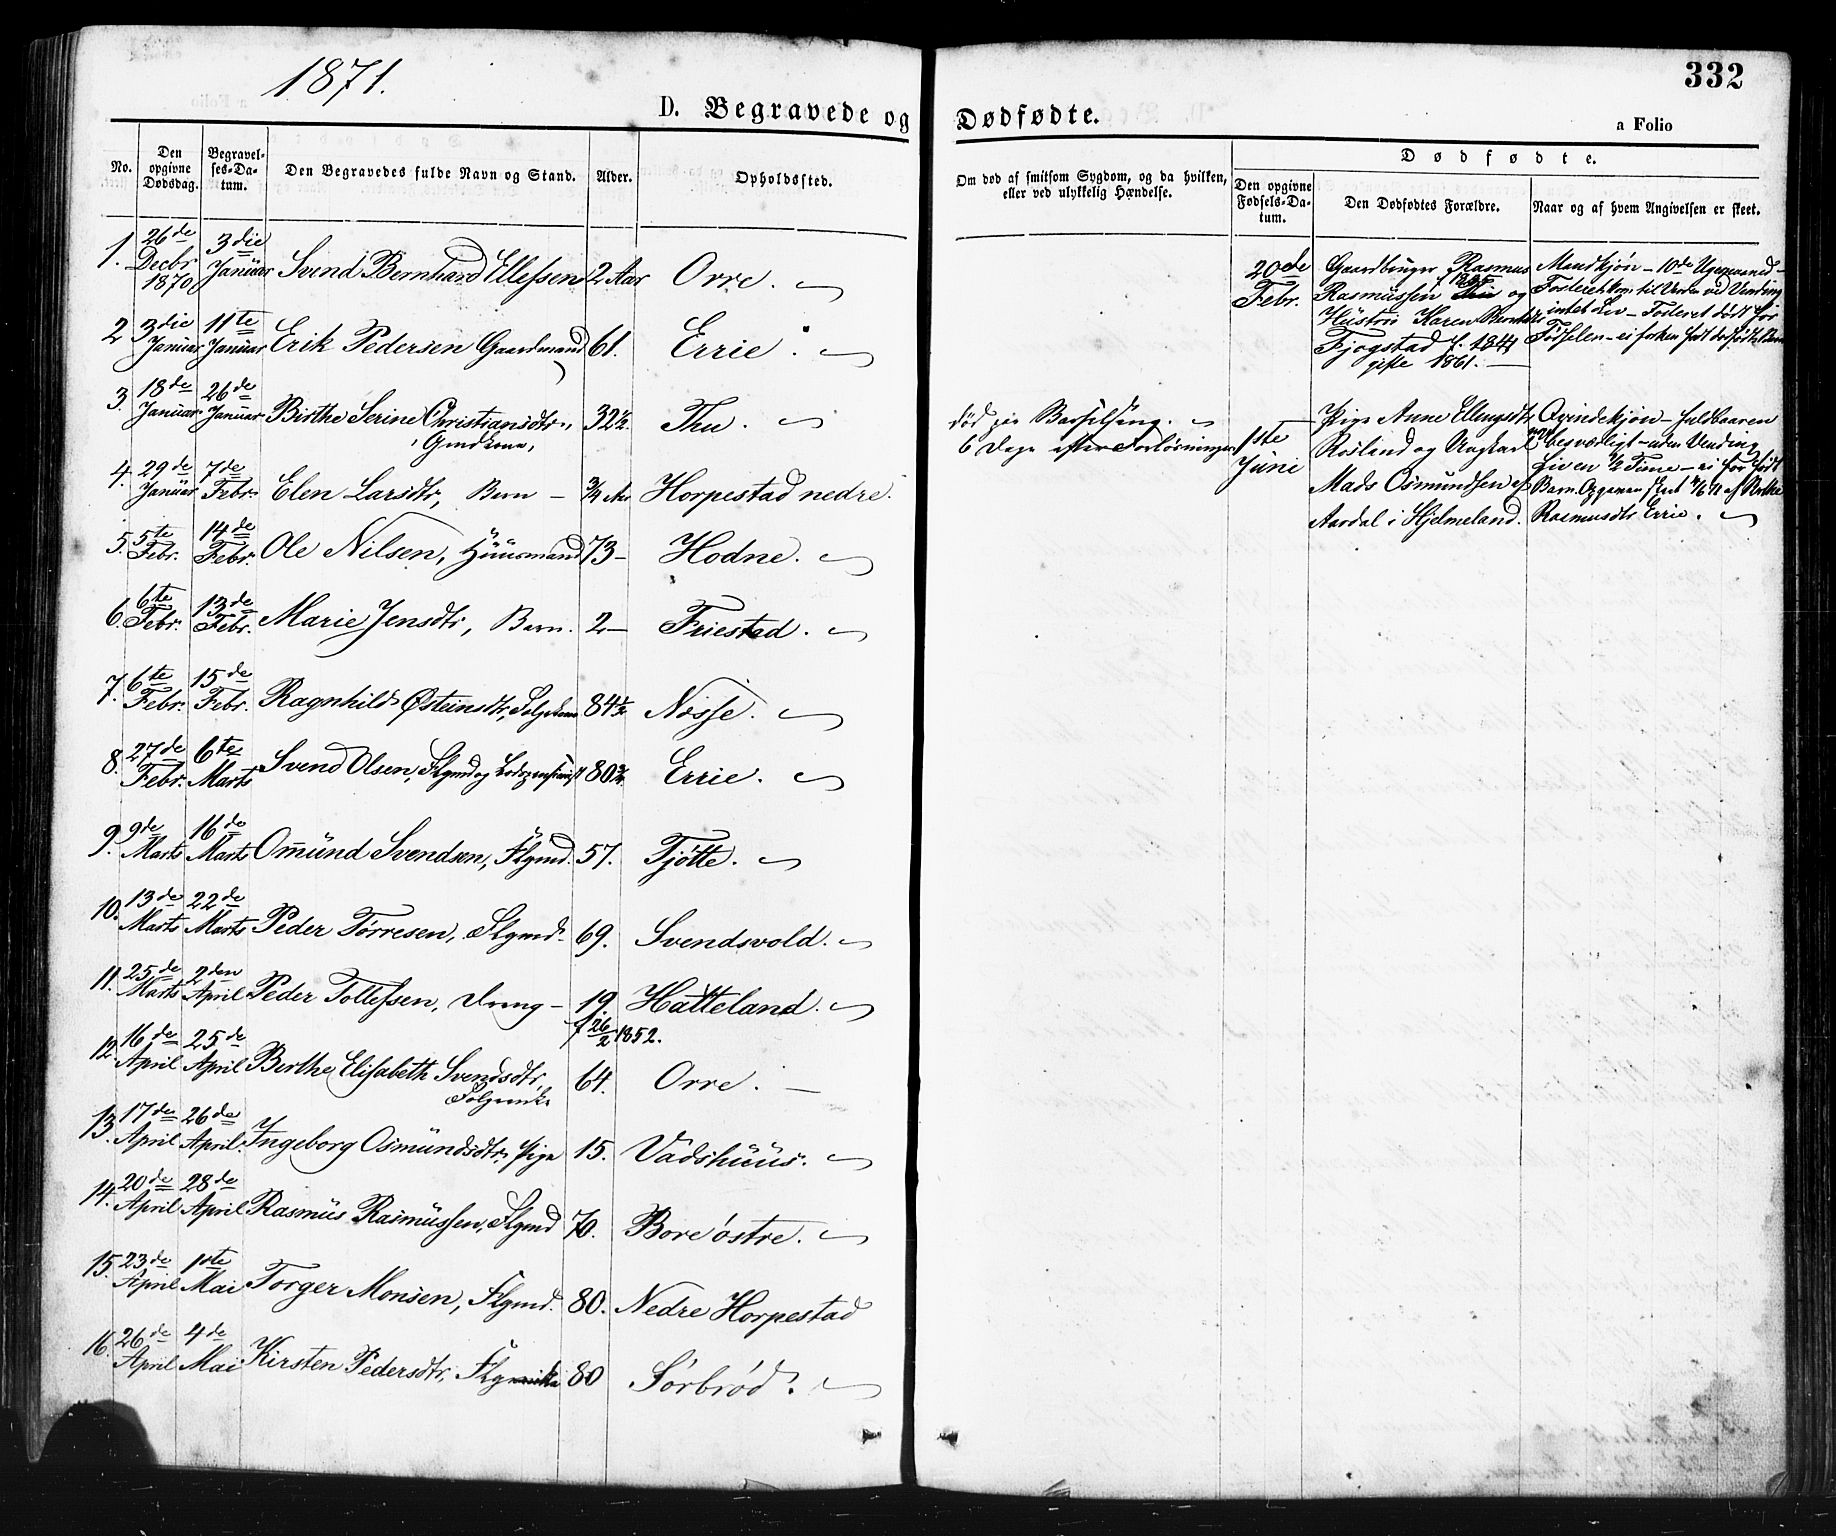 1871.
332
D. Begravede og Dødfødte.
a Folio
No.
Den opgivne Dødsdag.
Begravelses-Datum.
Den Begravedes fulde Navn og Stand.
Alder.
Opholdssted.
Om død af smitsom Sygdom, og da hvilken, eller ved ulykkelig Hændelse.
Dødfødte.
Den opgivne Fødsels-Datum.
Den Dødfødtes Forældre.
Naar og af hvem Angivelsen er skeet.
1. 26de Decbr 1870 3die Januar Svend Bernhard Ellefsen 2 Aar Orre.
2 3die Januar 11te Januar Erik Pedersen Gaardmand 61. Errie.
3. 18de Januar 26de Januar Birthe Serine Christiansdtr, Gmdkone, 32½. Thu.
død paa Barselseng.
6 Dage efter Forløsningen
4. 29de Januar 7de Febr. Elen Larsdtr, Barn – ¾ Aar Horpestad nedre.
5. 5te Febr. 14de Febr. Ole Nilsen, Huusmand 73 – Hodne.
6. 6te Febr. 13de Febr. Marie Jensdtr, Barn. 2 – Friestad.
7. 6te Febr. 15de Febr. Ragnhild Østeinsdtr, 84 Næsse.
8. 27de Febr. 6te Marts Svend Olsen, Flgmd og 80 Errie.
9. 9de Marts 16de Marts Omund Svendsen, Flgmd. 57. Tjøtte.
10. 13de Marts 22de Marts Peder Tørresen, Flgmd. 69. Svendsvold.
11. 25de Marts 2den April Peder Tollefsen, Dreng – 19. Hatteland.
f 26/2 1852.
12. 16de April 25de April Berthe Elisabeth Svendsdtr, 64. Orre. –
13. 17de April 26de April. Ingeborg Osmundsdtr. Pige 15. Vadshuus.
14. 20de April 28de April Rasmus Rasmussen, Flgmd 70. Bore østre.
15. 23de April 1ste Mai Torger Monsen, Flgmd. 80. Nedre Horpestad
16. 26de April 4de Mai Kirsten Pedersdtr, 80 Sørbrød.
20de Febr.
Gaardbruger Rasmus
Rasmussen og
Hustru Karen
Fjogstad f. 1844
gifte 1861. –
Mandkjøn – 10de
intet Liv – Fosteret dødt før
Fødselen –
1ste Juni
Pige Anne Ellingsdtr
Røsland og Ungkarl
Mads Osmundsen af
Aardal i Hjelmeland.
Qvindekjøn – fuldbaaren
besværligt – uden Vending
Liv en ½ Time –
Rasmusdtr Errie.